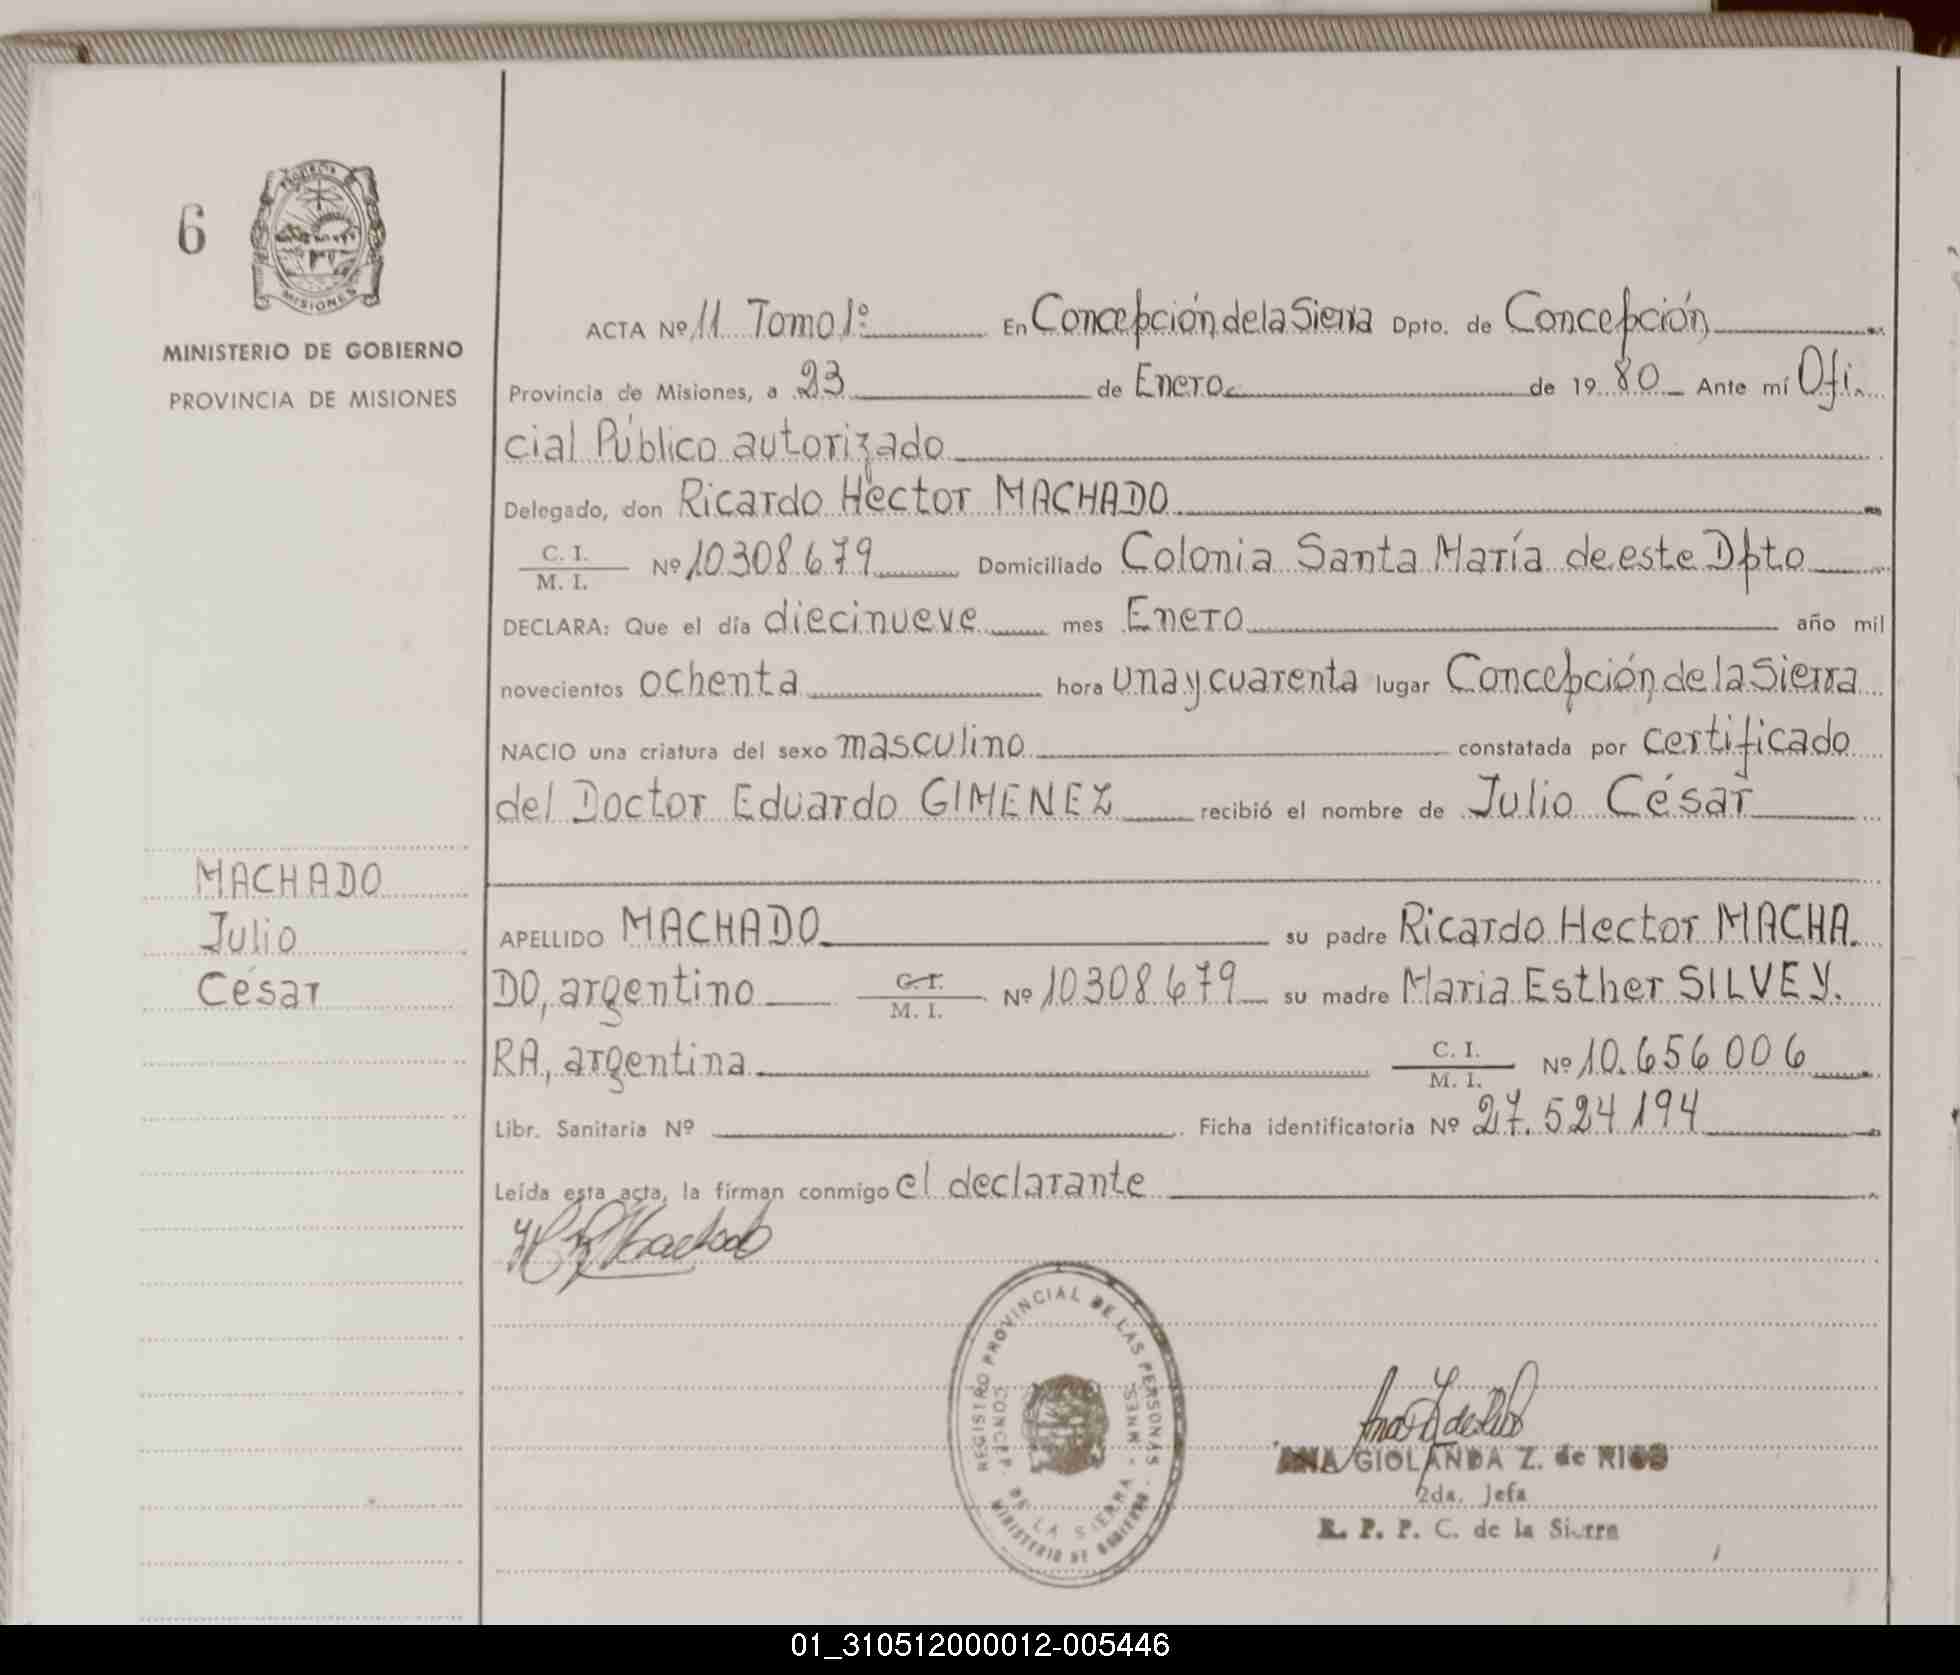 6
PROVINCIA
MISIONES
MINISTERIO DE GOBIERNO
PROVINCIA DE MISIONES
ACTA Nº 11 Tomo 1º En Concepción de la Sierra Dpto. de Concepción
Provincia de Misiones, a 23 de Enero de 1980 Ante mí Ofi
cial Público autorizado
Delegado, don Ricardo Héctor MACHADO
C. I.
M. I. Nº 10308679 Domiciliado Colonia Santa María de este Dpto
DECLARA: Que el día diecinueve mes Enero año mil
novecientos ochenta hora una y cuarenta lugar Concepción de la Sierra
NACIO una criatura del sexo masculino constatada por certificado
del Doctor Eduardo GIMENEZ recibió el nombre de Julio César
MACHADO
Julio
César
APELLIDO MACHADO su padre Ricardo Hector MACHA
DO, argentino C. I.
M. I. Nº 10308679 su madre Maria Esther SILVEY
RA, argentina C. I.
M. I. Nº 10.656006
Libr. Sanitaria Nº Ficha identificatoria Nº 27.524194
Leída esta acta, la firman conmigo el declarante
Machado
REGISTRO PROVINCIAL DE LAS PERSONAS
CONCEP. DE LA SIERRA - MNES.
MINISTERIO DE GOBIERNO
Ana Y de Rios
ANA GIOLANDA Z. de RIOS
2da. Jefa
R. P. P. C. de la Sierra
01_310512000012-005446